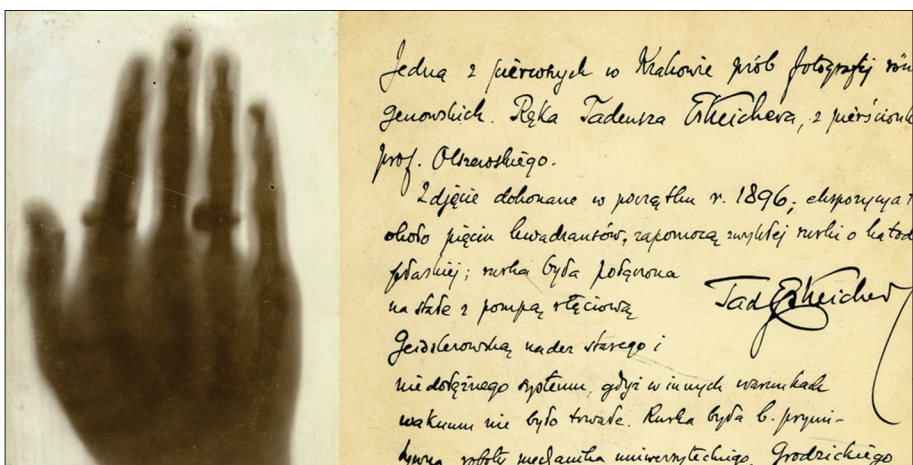 Jedna z pierwszych w Krakowie prób fotografij rön
genowskich. Ręka Tadeusza Estreichera, z pierścionk
prof. Olszewskiego.
Zdjęcie dokonane w początku r. 1896; ekspozycya
około pięciu kwadransów, zapomocą zwykłej rurki o katod
płaskiej; rurka była połączona
na stałe z pompą rtęciową
Tad Estreicher
Geisslerowską nader starego i
niedołężnego systemu, gdyż w innych warunkach
wakuum nie było trwałe. Rurka była b. prymi-
tywną robotą mechanika uniwersyteckiego, Grodzickiego